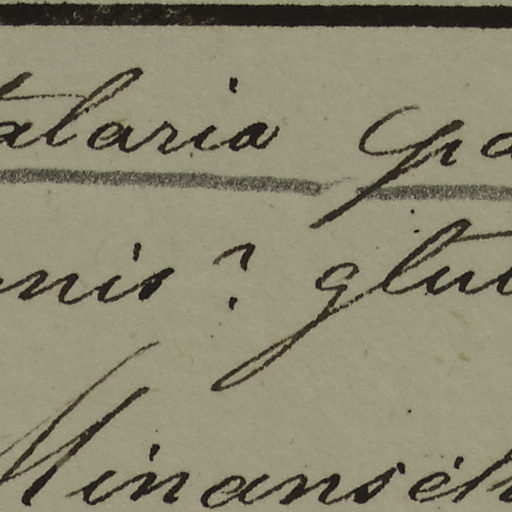 talaria pa
nnis? glut
Minanséh